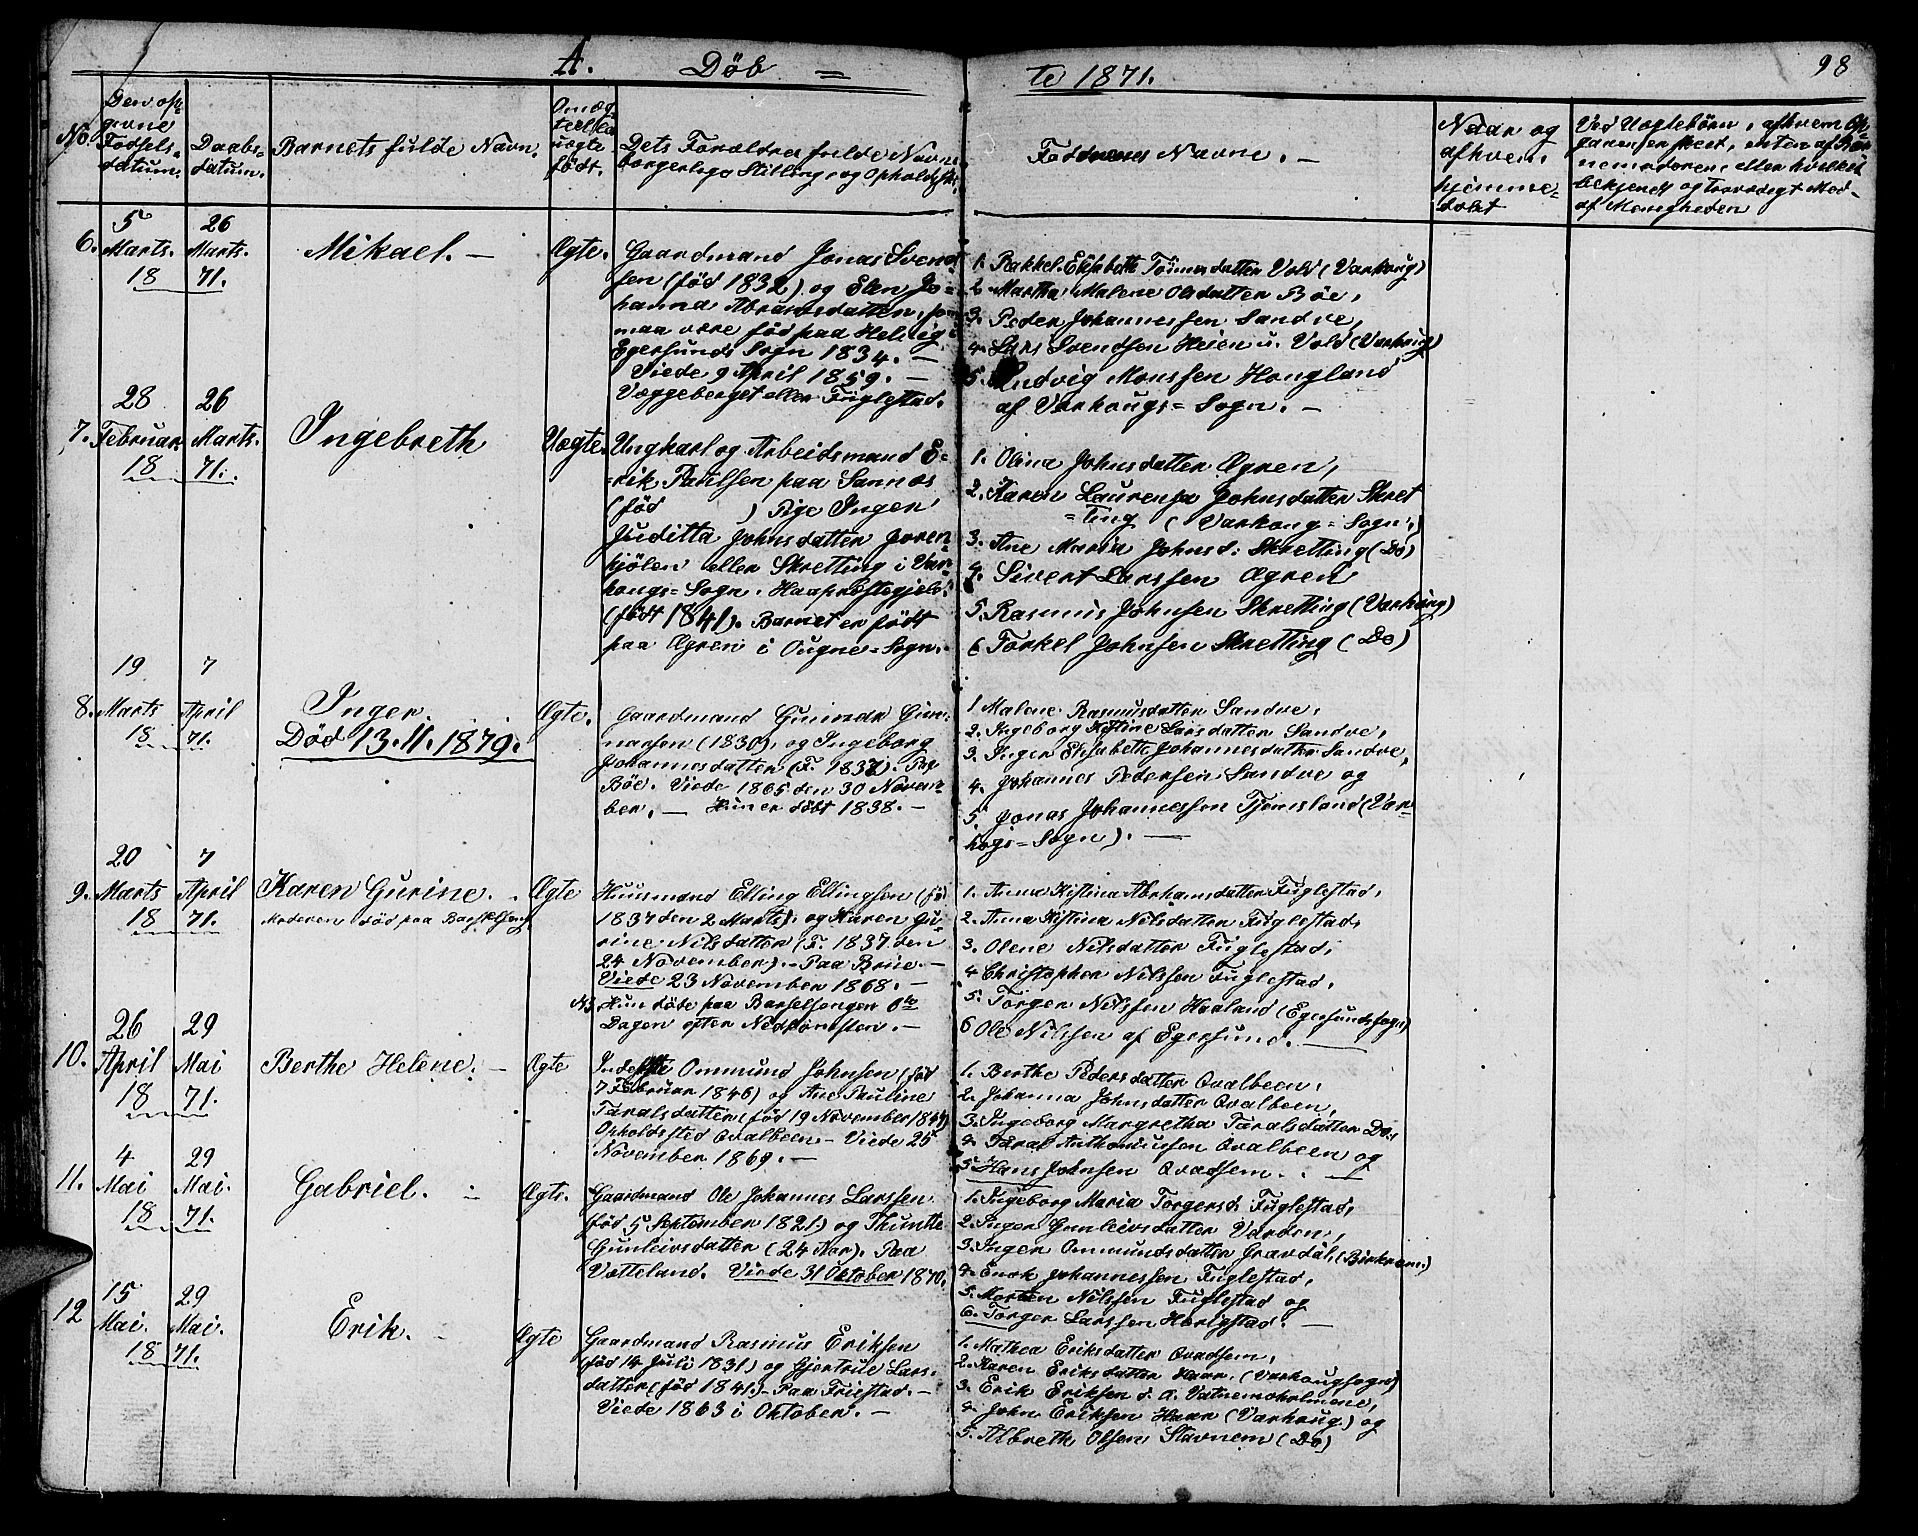 A. Døb = te 1871. 98
No.
Den op-
givne
Fødsels-
datum.
Daabs-
datum.
Barnets fulde Navn.
Om æg-
te eller
uægte
født.
Dets Forældres fulde Navne
borgerlige Stilling, og Opholdsst.
Faddernes Navne. —
Naar og
af hvem
hjemme-
døbt
Ved Uægtebørn, af hvem Op-
gaven er skeet, enten af Bar-
nemoderen, eller hvilket
bekjendt og troværdigt Med-
af Menigheden
6.
5
Marts.
18
26
Marts.
71.
Mikael. —
Ægte.
Gaardmand Jonas Svend-
sen (fød 1832) og Elen Jo-
hanna Abramsdatter, som
maa være fød paa Helvig i
Egersunds Sogn 1834. —
Viede 9 April 1859. —
Væggeberget eller Fuglestad.
1. Rakkel Elisabeth Tønnesdatter Vold (Varhoug)
2. Martha Malene Olsdatter Bøe,
3. Peder Johannessen Sandve,
4. Lars Svendsen Heien u. Vold (Varhoug)
5. Ludvig Monssen Hougland
af Varhougs = Sogn. —
7.
28
Februar
18
26
Marts.
71.
Ingebreth
Uægte.
Ungkarl og Arbeidsmand E-
rik Paulsen paa Sannes
(fød ) Pige Inger
Juditta Johnsdatter Joren-
kjölen eller Skretting i Var-
hougs = Sogn. Haa Præstegjeld.
(født 1841). Barnet er født
paa Ægren i Ougne = Sogn.
1. Olina Johnsdatter Ægren,
2. Karen Laurensa Johnsdatter Skret
= ting (Varhoug = Sogn),
3. Ane Maria Johnsd: Skretting (Do)
4. Sivert Larssen Ægren
5. Rasmus Johnsen Skretting (Varhoug)
6 Torkel Johnsen Skretting (Do)
8.
19
Marts
18
7
April
71.
Inger
Død 13.11.1879.
Ægte.
Gaardmand Gunnar Gun-
narsen (1830), og Ingeborg
Johannesdatter (F. 1837). Paa
Böe. Viede 1865 den 30 Novem-
ber. — Hun er døbt 1838. —
1. Malene Rasmusdatter Sandve,
2. Ingeborg Kistine Larsdatter Sandve,
3. Inger Elisabeth Johannesdatter Sandve,
4. Johannes Pedersen Sandve og
5 Jonas Johannessen Tjemsland (Var-
hogs = Sogn). —
9.
20
Marts
18
7
April
71.
Karen Gurine.
Moderen død paa Barselseng
Ægte
Huusmand Elling Ellingsen (fø.
1837 den 2 Marts). og Karen Gu-
rine Nilsdatter (F. 1837 den
24 November). Paa Brue. —
Viede 23 November 1868. —
NB. Hun døde paa Barselsengen 6te
Dagen efter Nedkomsten. —
1. Anna Kistina Abrhamsdatter Fuglestad,
2. Anna Kistina Nilsdatter Fuglestad,
3. Olene Nilsdatter Fuglestad,
4 Christopher Nilssen Fuglestad,
5. Torger Nilssen Haaland (Egersundssogn)
6 Ole Nilssen af Egersund. —
10.
26
April
18
29
Mai
71.
Berthe Helene. —
Ægte
Inderste Ommund Johnsen (fød
7 Februar 1846) og Ane Pauline
Taralsdatter (fød 19 November 1844)
Opholdssted Qvalbeen. — Viede 25
November 1869. —
1. Berthe Pedersdatter Qvalbeen,
2. Johanna Johnsdatter Qvalbeen,
3. Ingeborg Margretha Taralsdatter Do,
4. Taral Anthoniussen Qvalbeen og
5 Hans Johnsen Qvadsem. —
11.
4
Mai
18
29
Mai.
71.
Gabriel. —
Ægte.
Gaardmand Ole Johannes Larssen.
(fød 5 September 1821) og Thunte
Gunleivsdatter (24 Aar). Paa
Vetteland. Viede 31 Oktober 1870.
1. Ingeborg Maria Torgersd Fuglestad,
2. Inger Gunleivsdatter Varden,
3. Inger Ommundsdatter Gravdal, (Birkrem.)
4. Enok Johannessen Fuglestad,
5. Morten Nilssen Fuglestad og
6. Torger Larssen Herigstad. —
12
15
Mai.
18
29
Mai.
71.
Erik. —
Ægte
Gaardmand Rasmus Eriksen
(fød 14 Juli 1831) og Gjertrue Lars-
datter (fød 1841. — Paa Friestad. —
Viede 1863 i Oktober. —
1. Mathea Eriksdatter Qvadsem,
2. Karen Eriksdatter Haar. (Varhougsogn)
3. Erik Eriksen d. Æ. Vatnemoholmene,
4. John Eriksen Haar (Varhoug) og
5. Albreth Olsen Stavnem (Do)